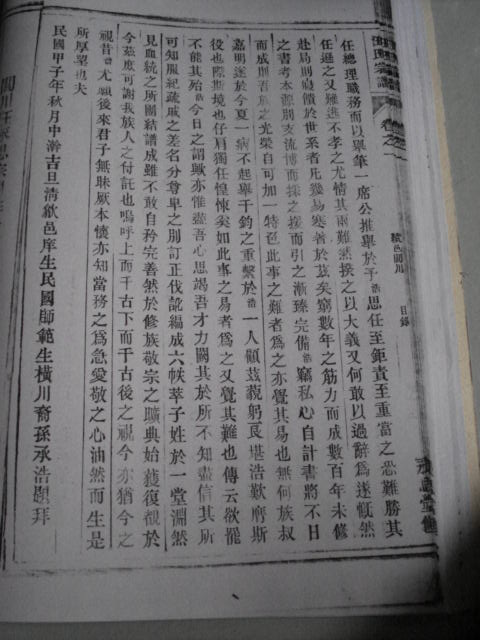 任總理職務而以舉筆一席公推舉於予浩思任至鉅責至重當之恐難勝其
任遜之又難逃不孝之尤情其兩難然揆之以大義又何敢以過辭為遂慨然
赴局則寢饋於世系者凡幾易寒暑於茲矣窮數年之筋力而成數百年未修
之書考本源別支流博而採之援而引之漸臻完備浩竊私心自計書將不日
而成則吾族之光榮自可加一特色此事之難者為之亦覺其易也無何族叔
嘉明遂於今夏一病不起舉千鈞之重繫於浩一人顧茲藐躬良堪浩歎膺斯
役也際斯境也仔肩獨任惶悚奚如此事之易者為之又覺其難也傳云欲罷
不能其殆浩今日之謂歟亦惟盡吾心思竭吾才力闕其於所不知盡信其所
可知服紀疏戚之差名分尊卑之別訂正伐訛編成六帙萃子姓於一堂淵然
見血統之所團結譜成雖不敢自矜完善然於修族敬宗之曠典始獲復覩於
今茲庶可謝我族人之付託也嗚呼上而千古下而千古後之視今亦猶今之
視昔浩尤願後來君子無昧厥本懷亦知當務之為急愛敬之心油然而生是
所厚望也夫
民國甲子年秋月中澣吉旦清歙邑庠生民國師範生橫川裔孫承浩題拜
卷之一
歙邑
目錄